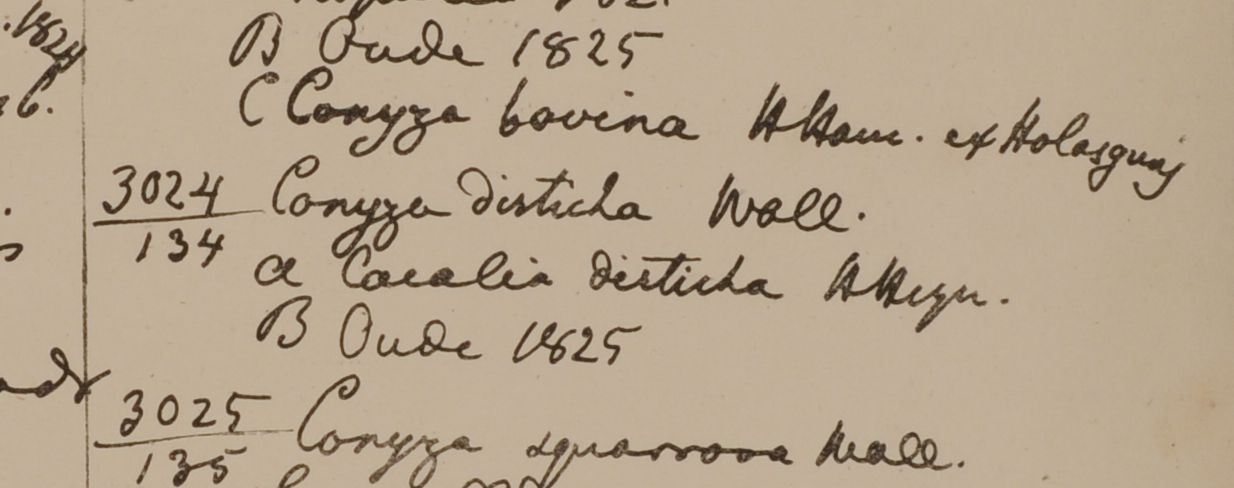 B Oude 1825
C Conyza bovina HHam. ex Holosgunj
3024 Conyza disticha Wall.
134
a Cacalia disticha HHeyn.
B Oude 1825
3025 Conyza squarrosa Wall.
135